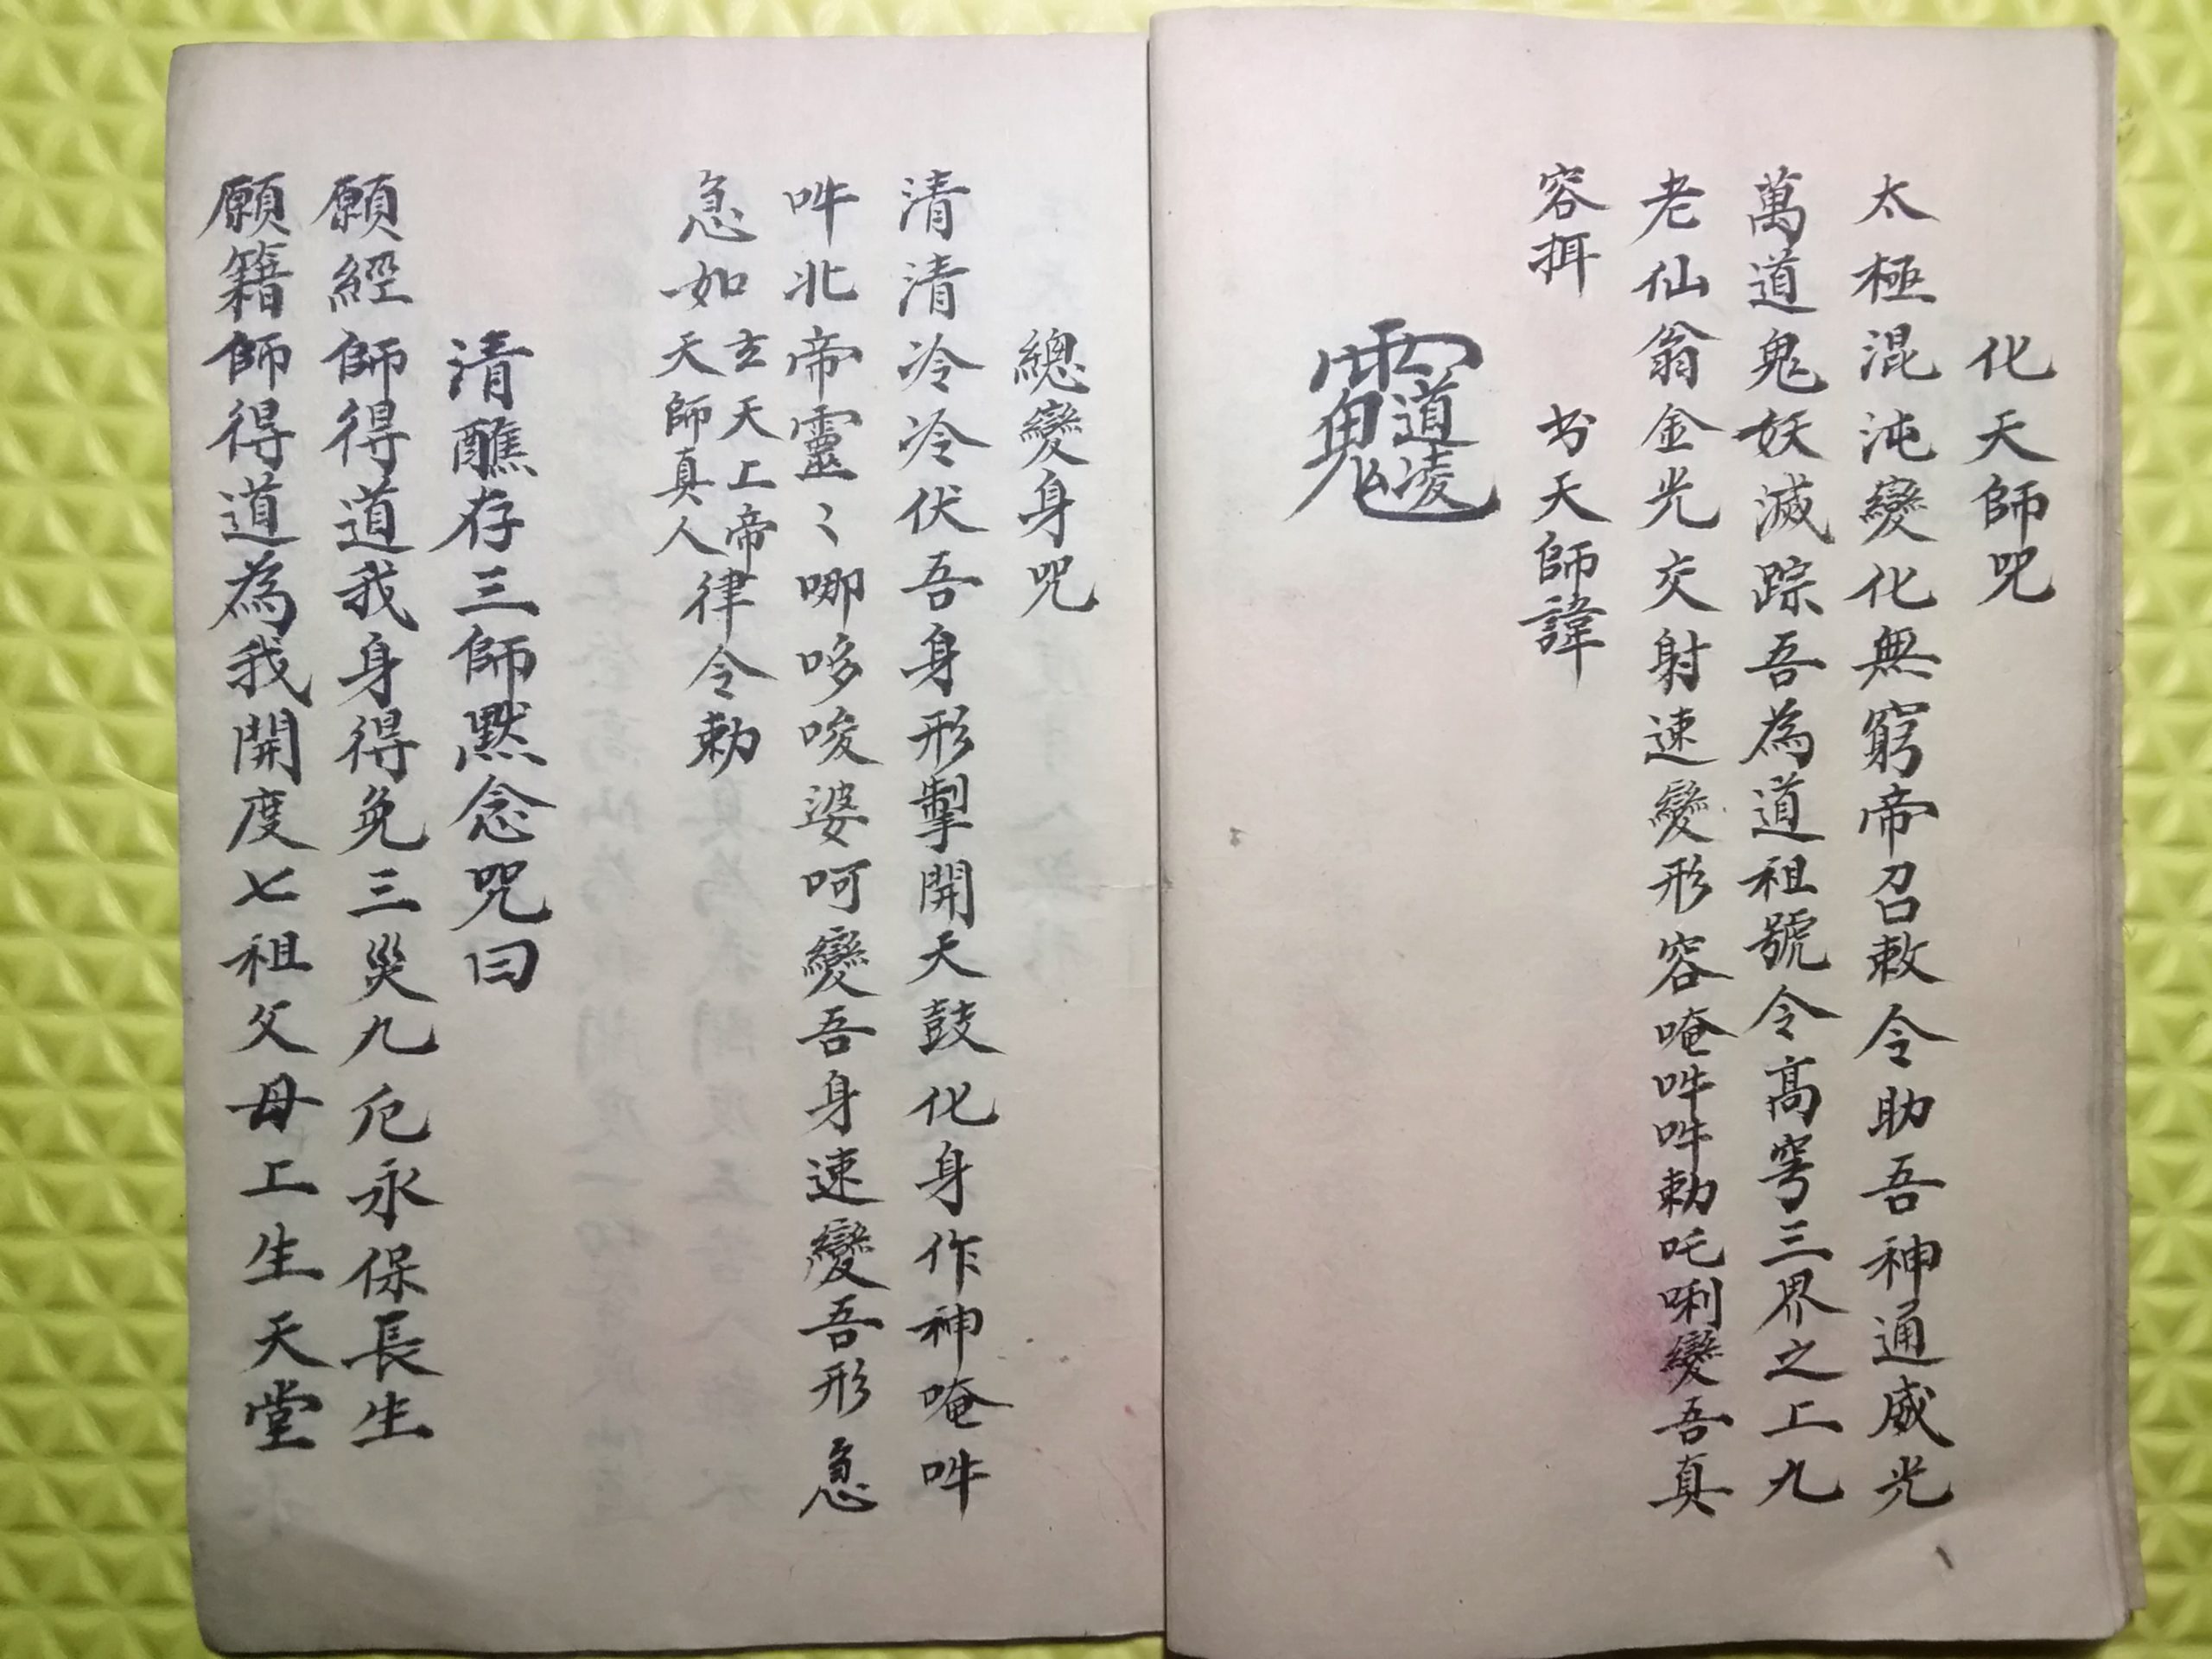 化天師咒
太極混沌變化無窮帝召敕令助吾神通威光
萬道鬼妖滅踪吾為道祖號令高穹三界之上九
老仙翁金光交射速變形容唵吽吽勅吒唎變吾真
容挕 书天師諱
總變身咒
清清冷冷伏吾身形掣開天鼓化身作神唵吽
吽北帝靈〻哪哆唆婆呵變吾身速變吾形急
急如玄天上帝天師真人律令勅
清醮存三師默念咒曰
願經師得道我身得免三災九厄永保長生
願籍師得道為我開度七祖父母上生天堂